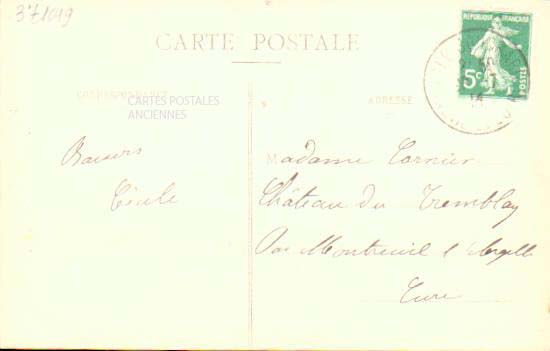 371019
CARTE POSTALE
RÉPUBLIQUE FRANÇAISE
5c
POSTES
CORRESPONDANCE
ADRESSE
CARTES POSTALES
ANCIENNES
Baisers
Cécile
Madame Cornier
Château du Tremblay
Par Montreuil l'Argillé
Eure